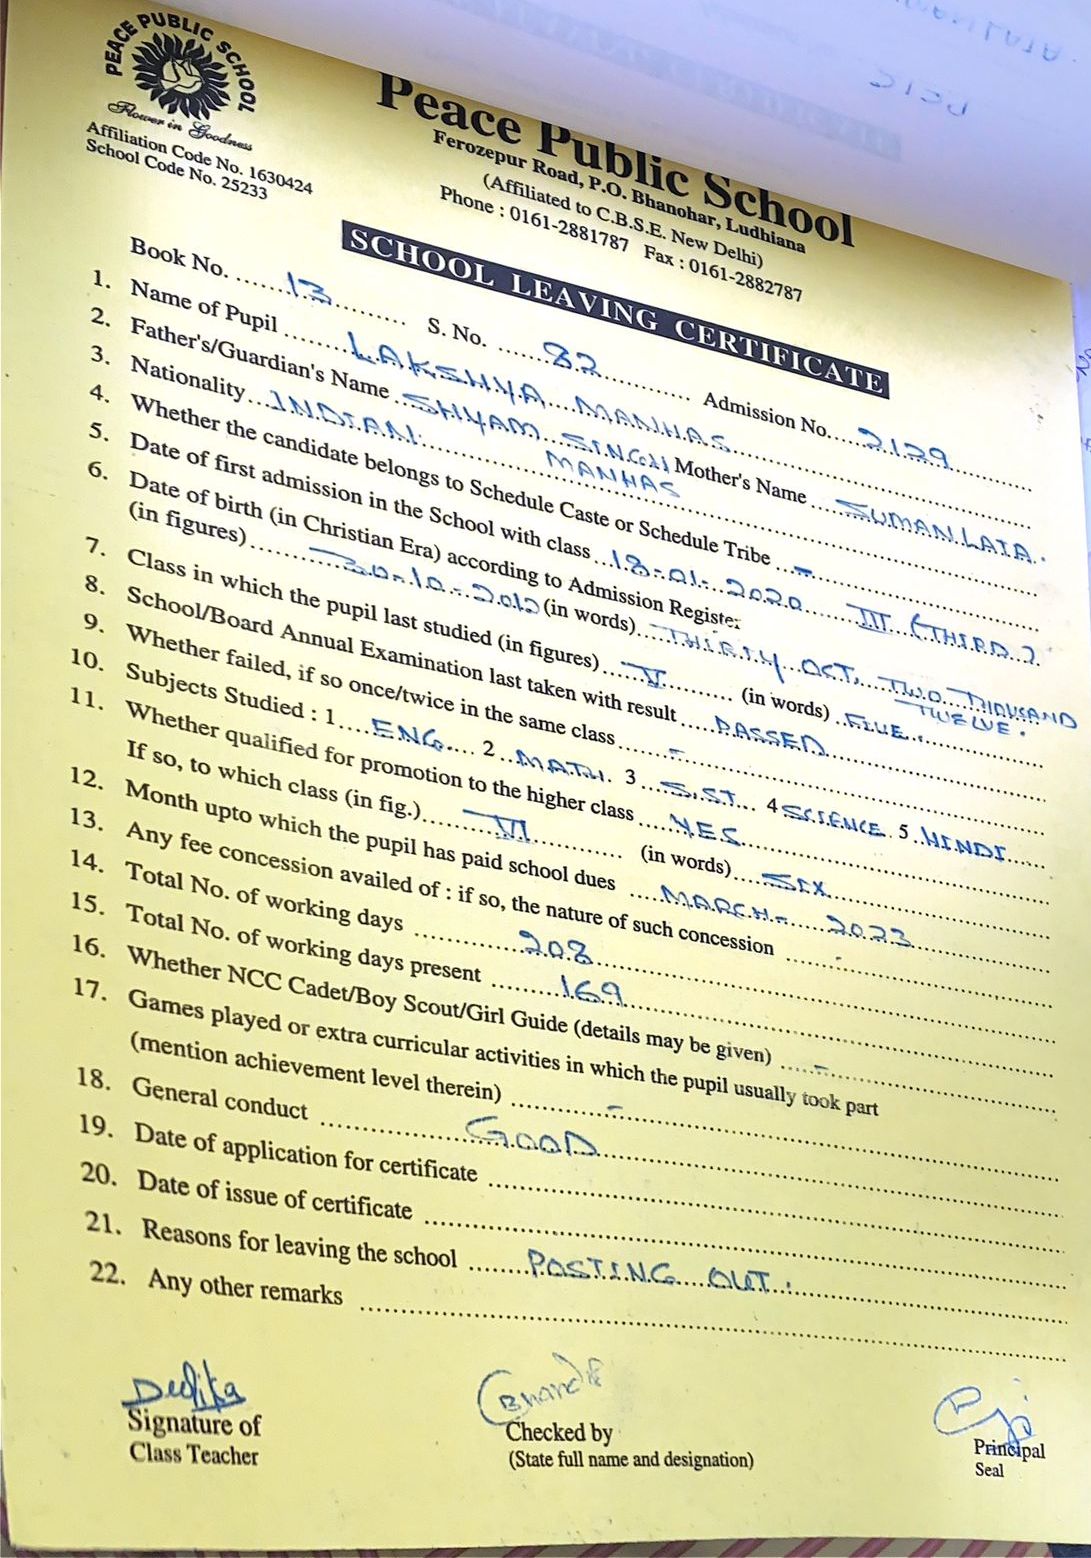 PEACE PUBLIC SCHOOL
Flower in Goodness
Affiliation Code No. 1630424
School Code No. 25233
Peace Public School
Ferozepur Road, P.O. Bhanohar, Ludhiana
(Affiliated to C.B.S.E. New Delhi)
Phone : 0161-2881787 Fax : 0161-2882787
SCHOOL LEAVING CERTIFICATE
Book No. 13 S. No. 82 Admission No. 2129
1. Name of Pupil LAKSHYA MANHAS
2. Father's/Guardian's Name SHYAM SINGH MANHAS Mother's Name SUMAN LATA.
3. Nationality INDIAN
4. Whether the candidate belongs to Schedule Caste or Schedule Tribe -
5. Date of first admission in the School with class 18-01-2020 III (THIRD)
6. Date of birth (in Christian Era) according to Admission Register
(in figures) 30-10-2012 (in words) THIRTY OCT, TWO THOUSAND TWELVE.
7. Class in which the pupil last studied (in figures) V (in words) FIVE.
8. School/Board Annual Examination last taken with result PASSED
9. Whether failed, if so once/twice in the same class -
10. Subjects Studied : 1 ENG 2 MATH. 3 S.ST 4 SCIENCE 5 HINDI
11. Whether qualified for promotion to the higher class YES
If so, to which class (in fig.) VI (in words) SIX
12. Month upto which the pupil has paid school dues MARCH - 2023
13. Any fee concession availed of : if so, the nature of such concession -
14. Total No. of working days 208
15. Total No. of working days present 169
16. Whether NCC Cadet/Boy Scout/Girl Guide (details may be given) -
17. Games played or extra curricular activities in which the pupil usually took part
(mention achievement level therein) -
18. General conduct GOOD
19. Date of application for certificate
20. Date of issue of certificate
21. Reasons for leaving the school POSTING OUT.
22. Any other remarks
Signature of
Class Teacher
Checked by
(State full name and designation)
Principal
Seal